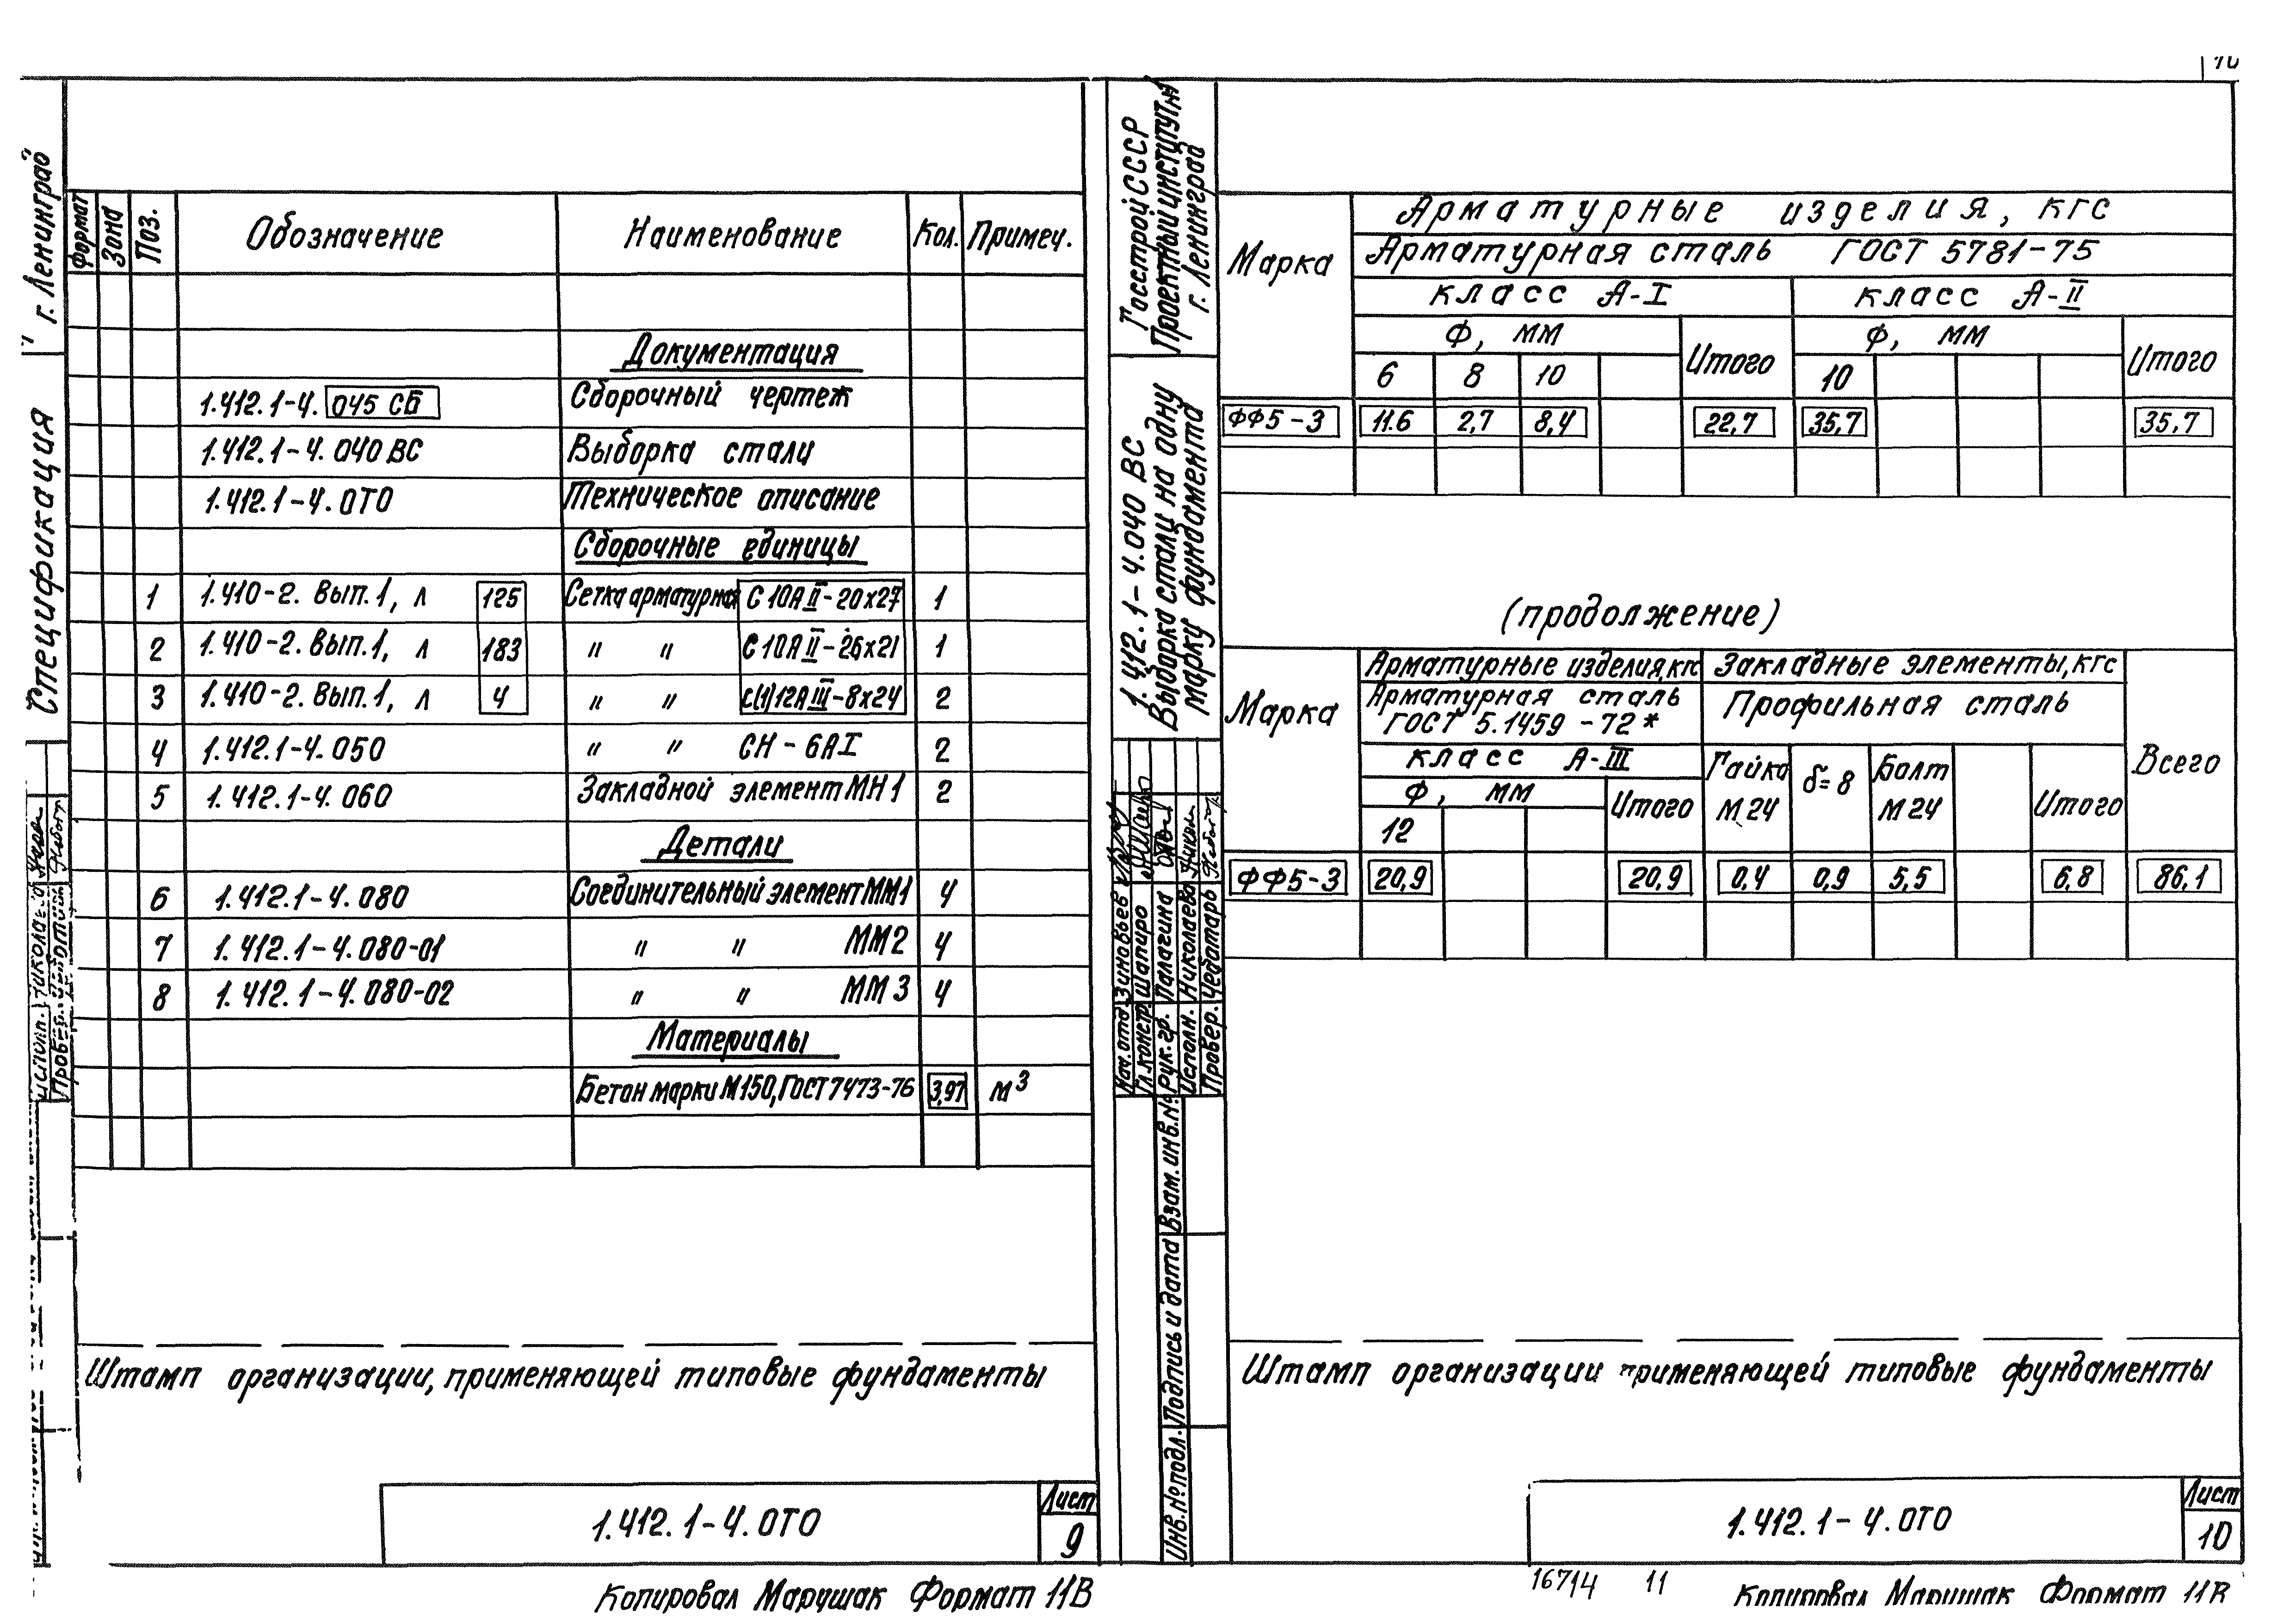 10
Спецификация
г. Ленинград
Формат Зона Поз. Обозначение Наименование Кол. Примеч.
Документация
1.412.1-4. 045 СБ Сборочный чертеж
1.412.1-4. 040 ВС Выборка стали
1.412.1-4. ОТО Техническое описание
Сборочные единицы
1 1.410-2. Вып.1, л 125 Сетка арматурная С 10А II-20х27 1
2 1.410-2. Вып.1, л 183 " " С 10А II-26х21 1
3 1.410-2. Вып.1, л 4 " " С(1)12А III-8х24 2
4 1.412.1-4. 050 " " СН-6АI 2
5 1.412.1-4. 060 Закладной элемент МН1 2
Детали
6 1.412.1-4. 080 Соединительный элемент ММ1 4
7 1.412.1-4. 080-01 " " ММ2 4
8 1.412.1-4. 080-02 " " ММ3 4
Материалы
Бетон марки М150, ГОСТ 7473-76 3,97 м³
Штамп организации, применяющей типовые фундаменты
1.412.1-4. ОТО
Лист
9
Копировал Марушак Формат 11В
Госстрой СССР
Проектный институт №1
г. Ленинград
1.412.1-4. 040 ВС
Выборка стали на одну
марку фундамента
Нач. отд. Зиновьев
Гл. констр. Шапиро
Рук. гр. Палагина
Исполн. Николаева
Провер. Чеботарь
Взам. инв. №
Подпись и дата
Инв. № подл.
Марка Арматурные изделия, кгс
Арматурная сталь ГОСТ 5781-75
класс А-I класс А-II
Ф, мм Итого Ф, мм Итого
6 8 10 10
ФФ5-3 11.6 2,7 8,4 22,7 35,7 35,7
(продолжение)
Марка Арматурные изделия, кгс Закладные элементы, кгс Всего
Арматурная сталь Профильная сталь
ГОСТ 5.1459-72*
класс А-III Гайка М24 δ=8 Болт М24 Итого
Ф, мм Итого
12
ФФ5-3 20,9 20,9 0,4 0,9 5,5 6,8 86,1
Штамп организации применяющей типовые фундаменты
1.412.1-4. ОТО
Лист
10
16714 11
Копировал Марушак Формат 11В